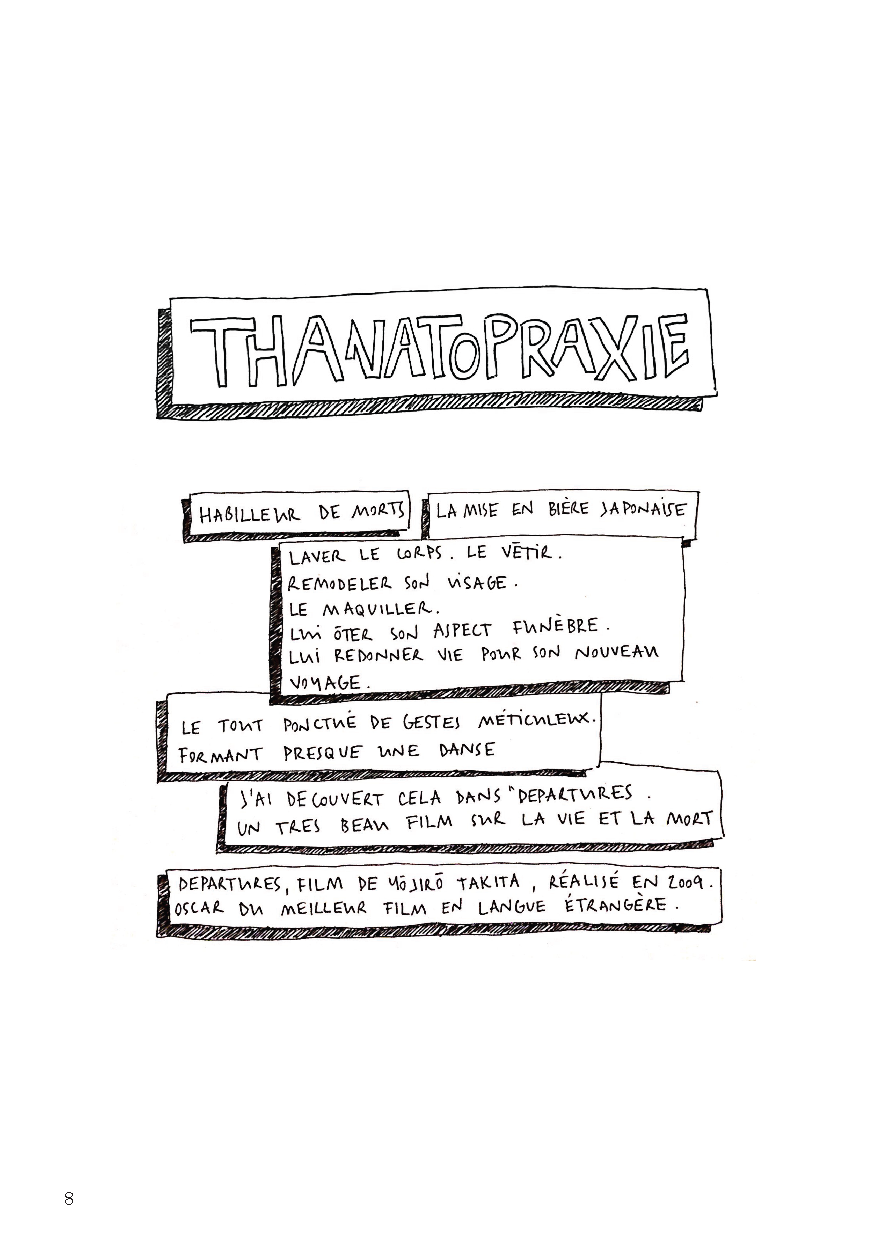 THANATOPRAXIE
HABILLEUR DE MORTS
LA MISE EN BIÈRE JAPONAISE
LAVER LE CORPS. LE VÊTIR.
REMODELER SON VISAGE.
LE MAQUILLER.
LUI ÔTER SON ASPECT FUNÈBRE.
LUI REDONNER VIE POUR SON NOUVEAU
VOYAGE.
LE TOUT PONCTUÉ DE GESTES MÉTICULEUX.
FORMANT PRESQUE UNE DANSE
J'AI DECOUVERT CELA DANS "DEPARTURES.
UN TRES BEAU FILM SUR LA VIE ET LA MORT
DEPARTURES, FILM DE YŌJIRŌ TAKITA, RÉALISÉ EN 2009.
OSCAR DU MEILLEUR FILM EN LANGUE ÉTRANGÈRE.
8